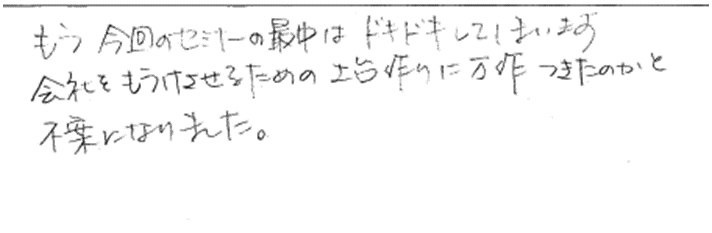 もう今回のセミナーの最中はドキドキしてしまいます
会社をもうけさせるための土台作りに万作つきたのかと
不葉になりました。